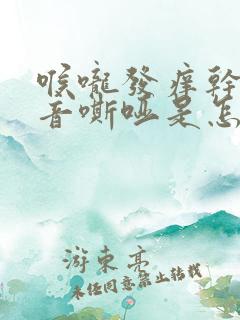 喉嚨發痒幹
音嘶啞是怎
游東亭
未经同意禁止转载